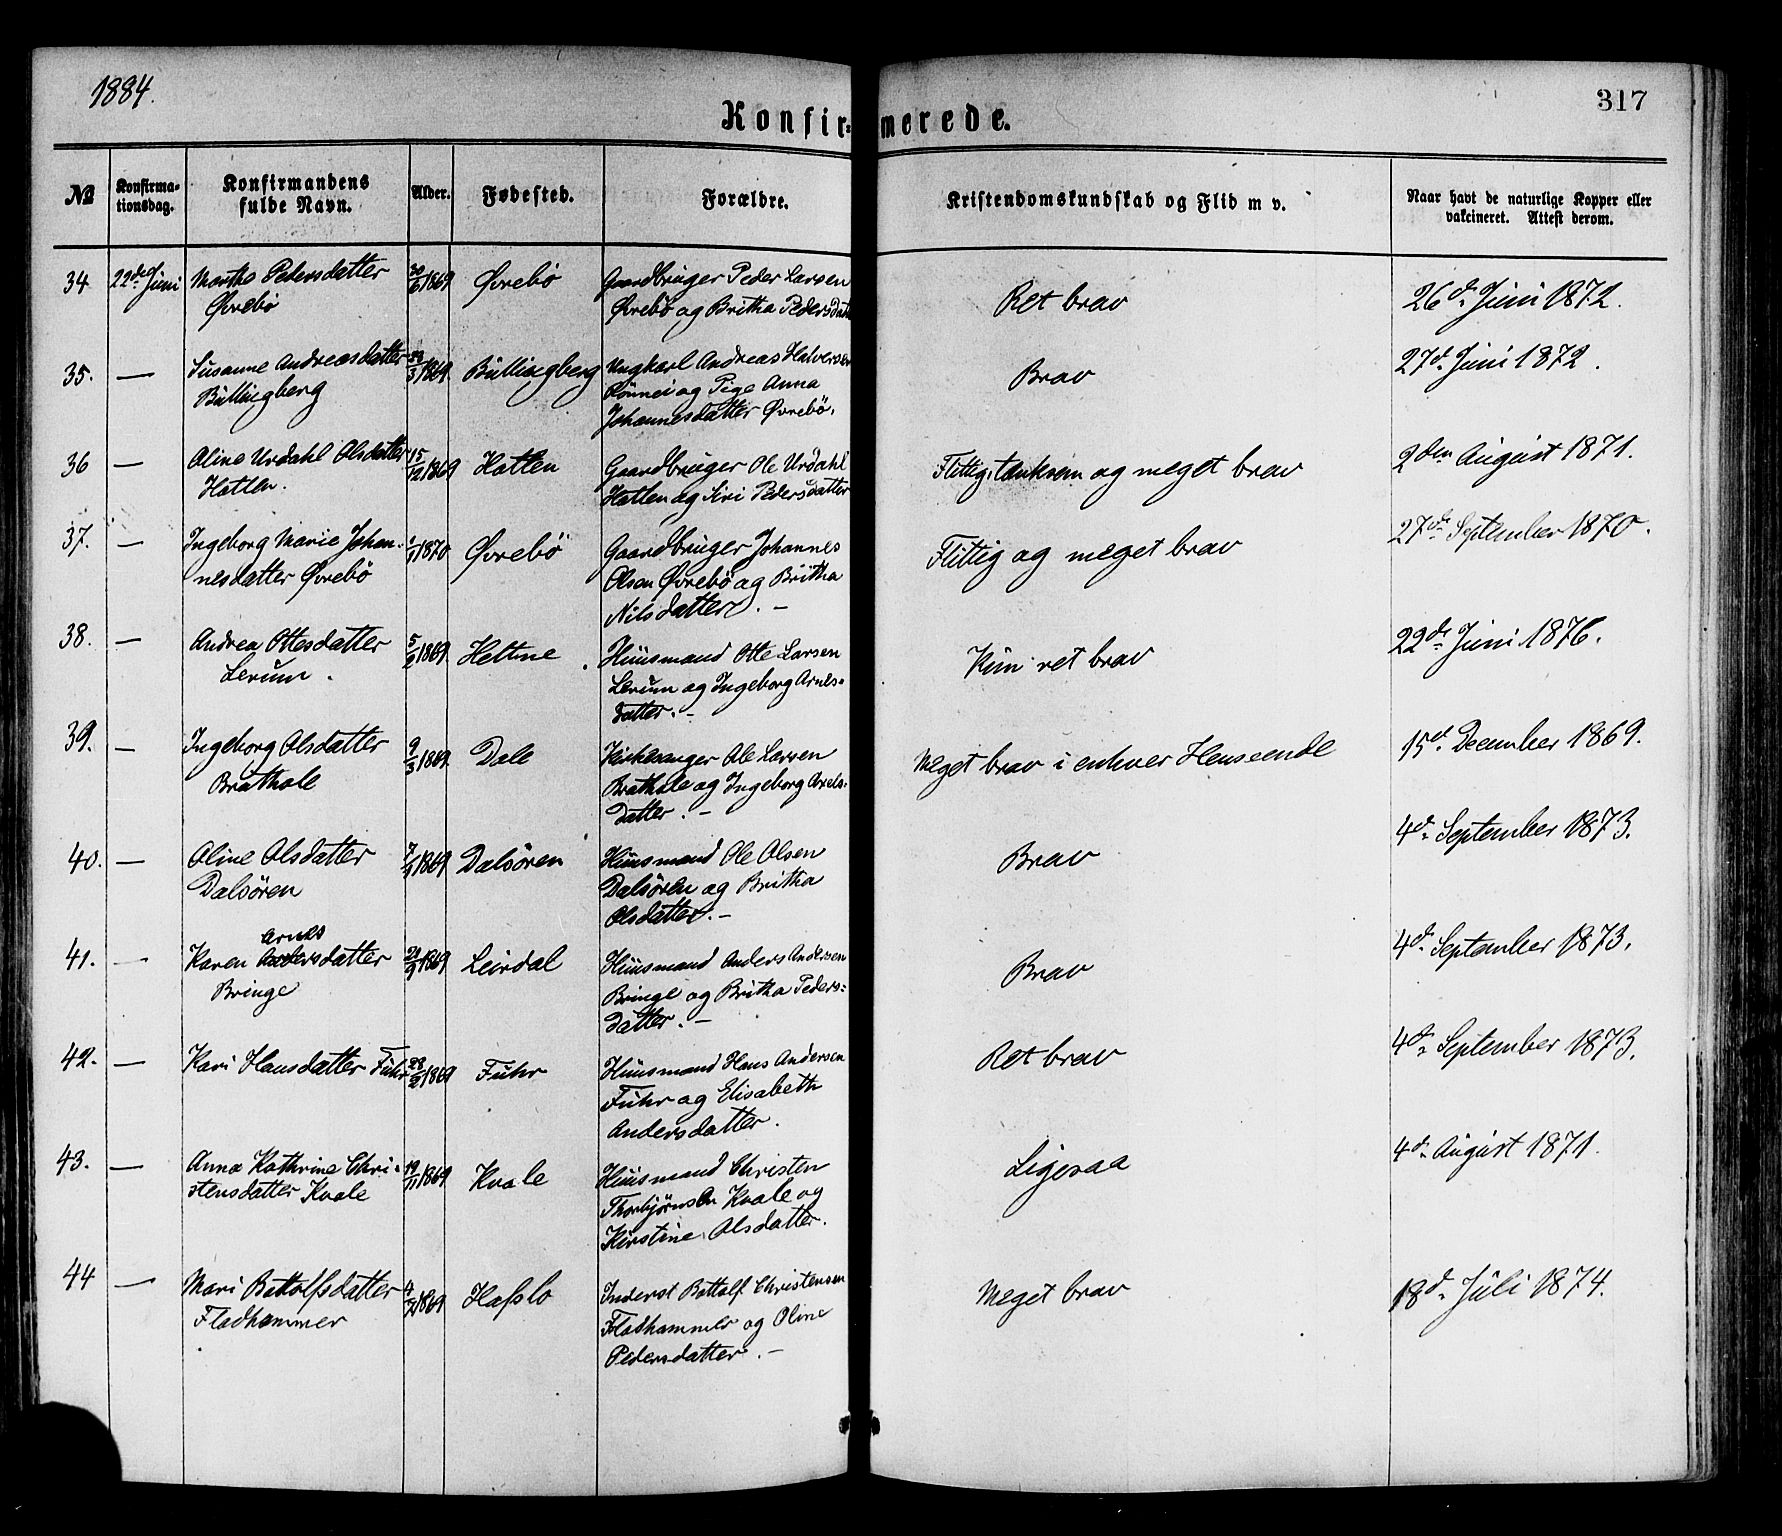 1884.
317
Konfirmerede.
№ Konfirmationsdag. Konfirmandens fulde Navn. Alder. Fødested. Forældre. Kristendomskundskab og Flid m v. Naar havt de naturlige Kopper eller vakcineret. Attest derom.
34 22de Juni Martha Pedersdatter 30/6 1869 Øvrebö Gaardbruger Peder Larsen Ret brav 26d. Juni 1872.
Øvrebö Øvrebö og Britha Pedersdatt
35. — Susanne Andreasdatter /3 1869 Büllingberg Ungkarl Andreas Halversen Brav 27d. Juni 1872.
Büllingberg Rönnei og Pige Anna
Johannesdatter Øvrebö.
36 — Oline Urdahl Olsdatter 15/12 1869 Hatlen Gaardbruger Ole Urdahl Flittig, tænksom og meget brav 2den August 1871.
Hatlen. Hatlen og Siri Pedersdatter
37. — Ingeborg Marie Johan- 1/1 1870 Øvrebö Gaardbruger Johannes Flittig og meget brav 27de September 1870.
nesdatter Øvrebö Olsen Øvrebö og Britha
Nilsdatter. —
38. — Andrea Ottesdatter 5/2 1869 Hettne Huusmand Otte Larsen Kun ret brav 22de Juni 1876.
Lerum. Lerum og Ingeborg Arnes-
datter. —
39. — Ingeborg Olsdatter 9/3 1869 Dale Kirkesanger Ole Larsen Meget brav i enhver Henseende 15d. December 1869.
Bråthole Brathole og Ingeborg Axels-
datter. —
40. — Oline Olsdatter 7/9 1869 Dalsören Huusmand Ole Olsen Brav 4d. September 1873.
Dalsören Dalsören og Britha
Olsdatter. —
Arnes
41. — Karen Andersdatter 29/9 1869 Leirdal Huusmand Anders Andersen Brav 4d. September 1873.
Bringe Bringe og Britha Peders-
datter. —
42. — Kari Hansdatter Fuhr 28/2 1869 Fuhr Huusmand Hans Andersen Ret brav 4d. September 1873.
Fuhr og Elisabeth
Andersdatter.
43. — Anna Kathrine Chri- 19/11 1869 Kvale Huusmand Christen Ligesaa 4d. August 1871.
stensdatter Kvale Thorbjørnsen Kvale og
Kirstine Olsdatter.
44 — Mari Bottolfsdatter 4/7 1869 Hafslo Inderst Bottolf Christensen Meget brav 18d. Juli 1874.
Fladhammer Fladhammer og Oline
Pedersdatter. —